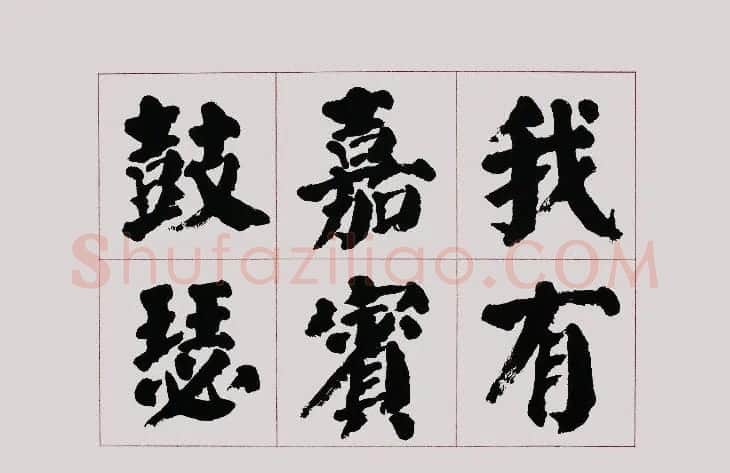 我有
嘉賓
鼓瑟
Shufaziliao.COM